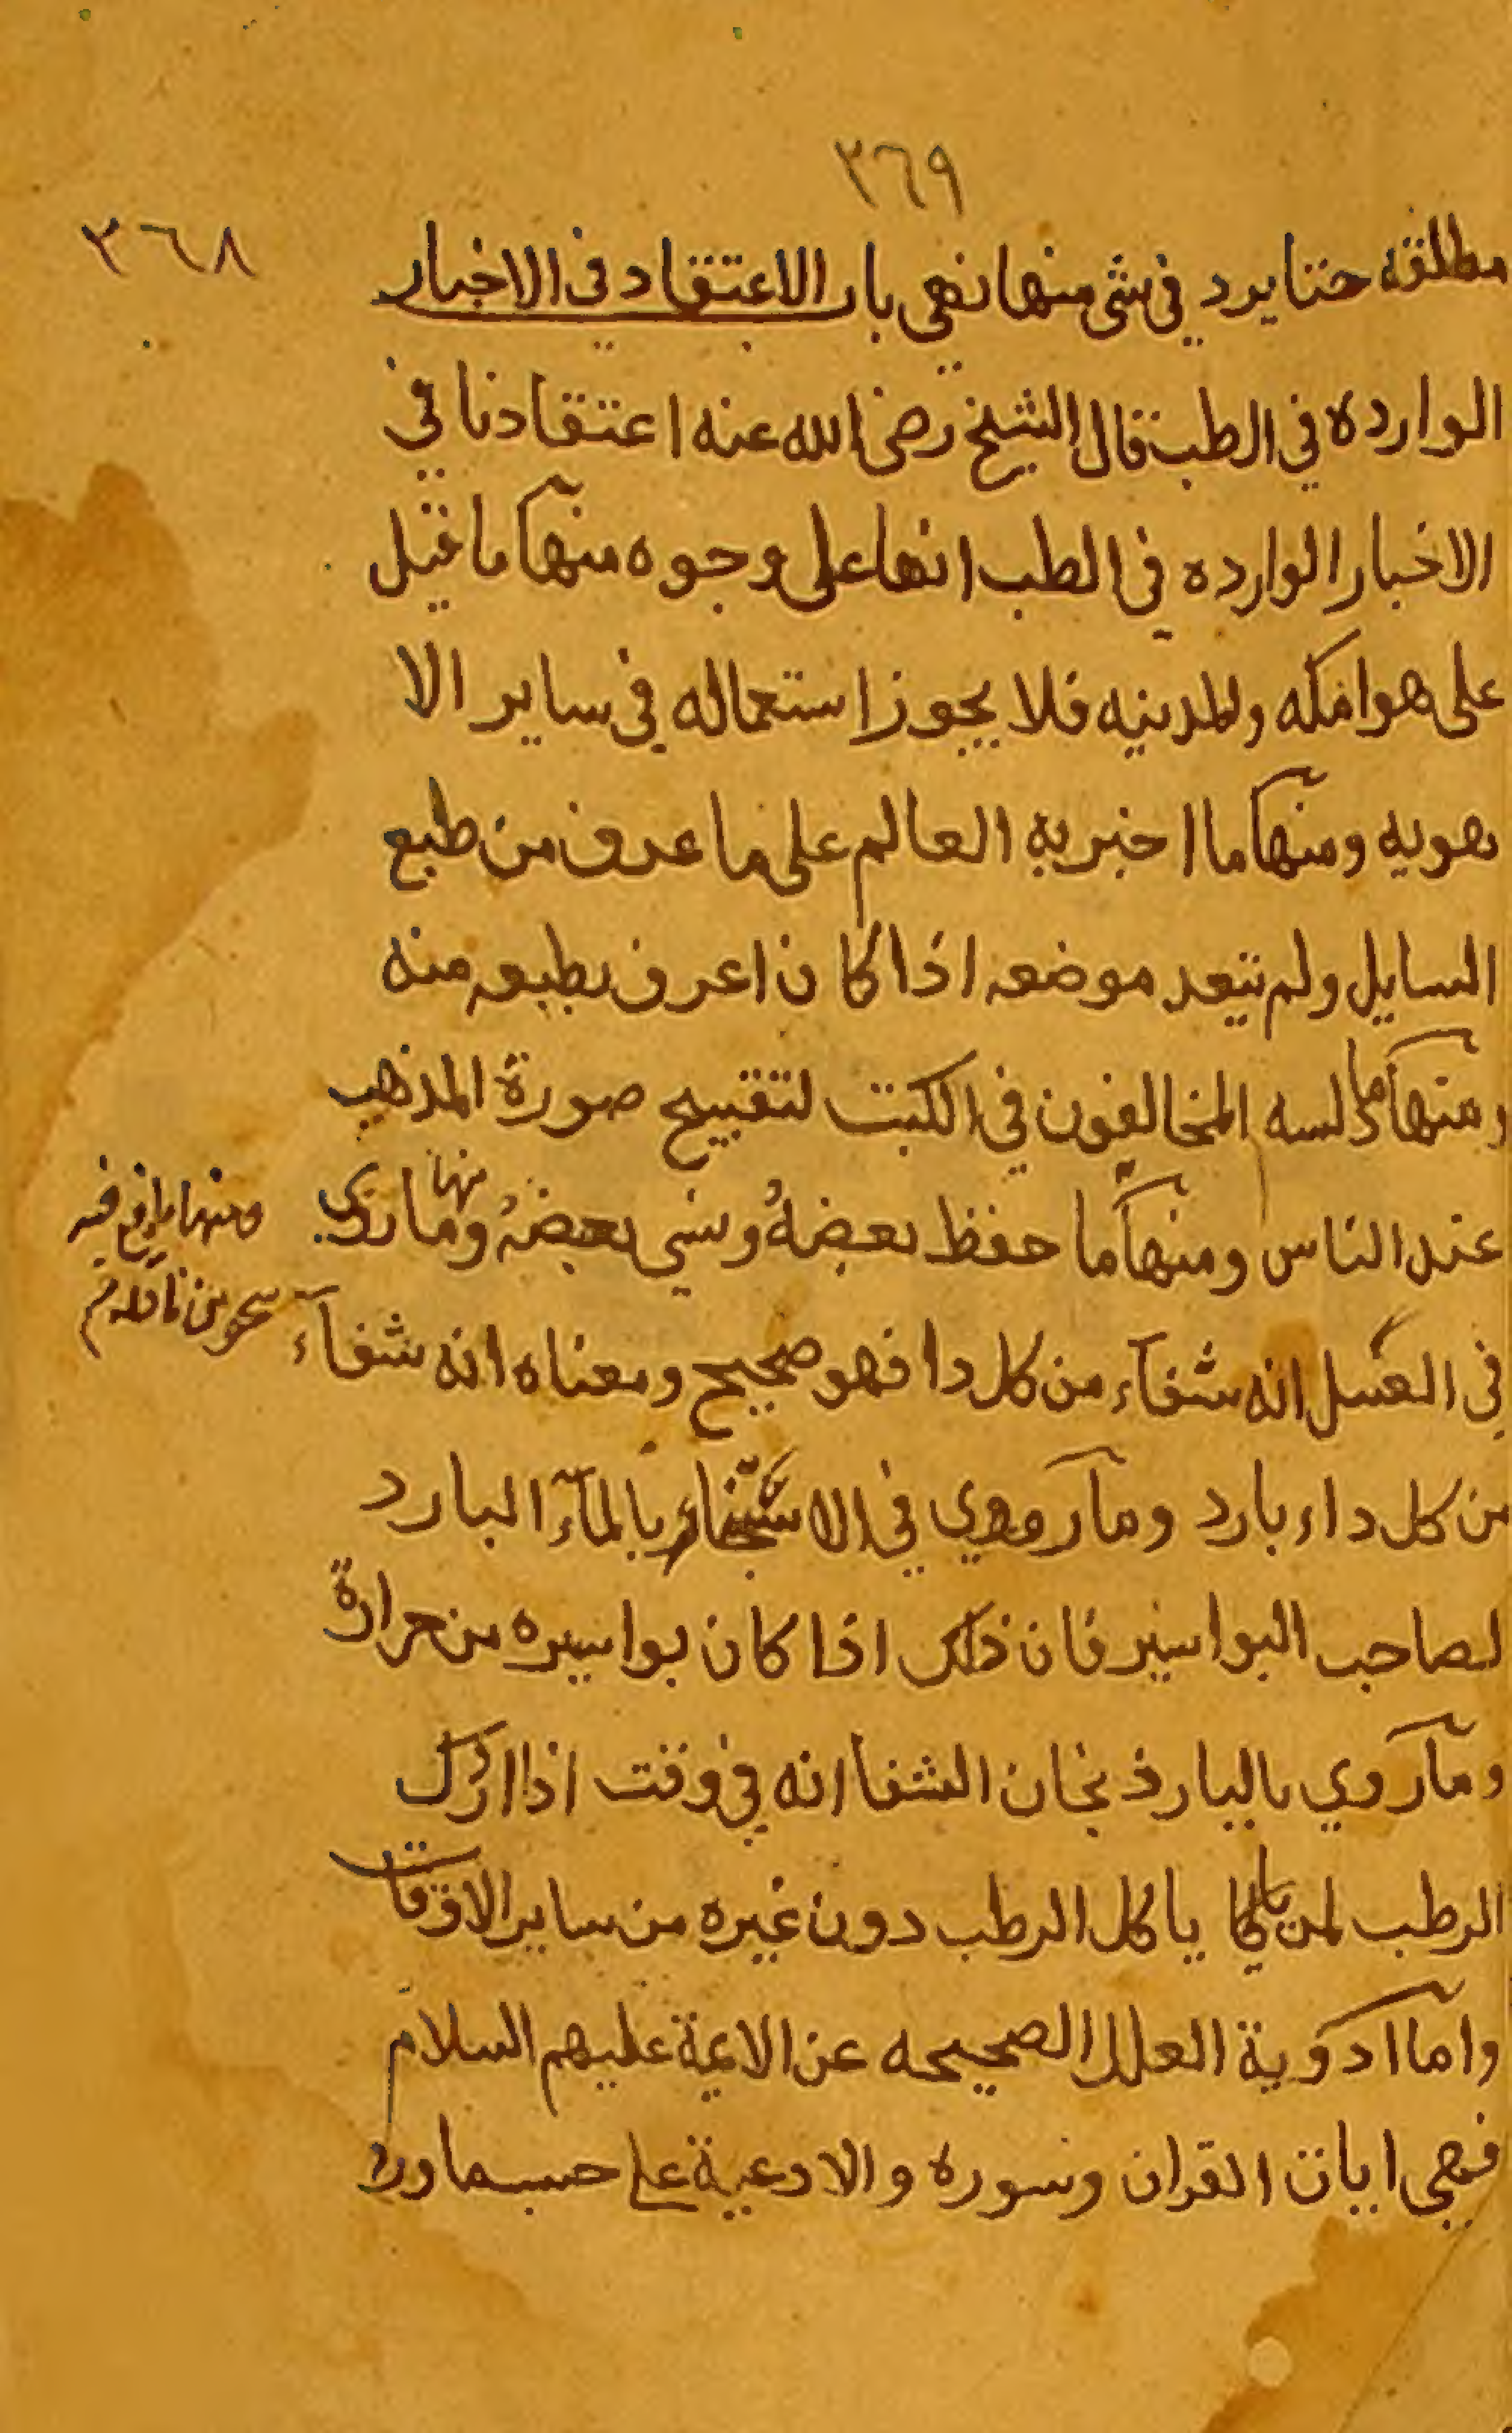 ٣٦٩
٣٦٨
مطلقه حتا يرد في شي منها نهي باب الاعتقاد في الاخبار
الوارده في الطب قال الشيخ رضي الله عنه اعتقادنا في
الاخبار الوارده في الطب انها على وجوه منها ما قيل
على هوا مكه والمدينه فلا يجوز استعماله في ساير الا
هويه ومنها ما اخبر به العالم على ما عرف من طبع
السايل ولم يتعد موضعه اذا كان اعرف بطبعه منه
ومنها ما دلسه المخالفون في الكتب لتقبيح صورة المذهب
عند الناس ومنها ما حفظ بعضهُ ونسي بعضهُ وما روي
ومنها ما وقع فيه
سهو من ناقله
في العسل انه شفآء من كل دا فهو صحيح ومعناه انه شفآء
من كل داء بارد ومآ روي في الاستنجاء بالمآء البارد
لصاحب البواسير فان ذلك اذا كان بواسيره من حرارة
ومآ روي بالباردنجان الشفا انه في وقت اذا ادرك
الرطب لمن ياكل الرطب دون غيره من ساير الاوقات
واما ادوية العلل الصحيحه عن الايمة عليهم السلام
فهي ايات القران وسوره والادعية على حسب ما ورد